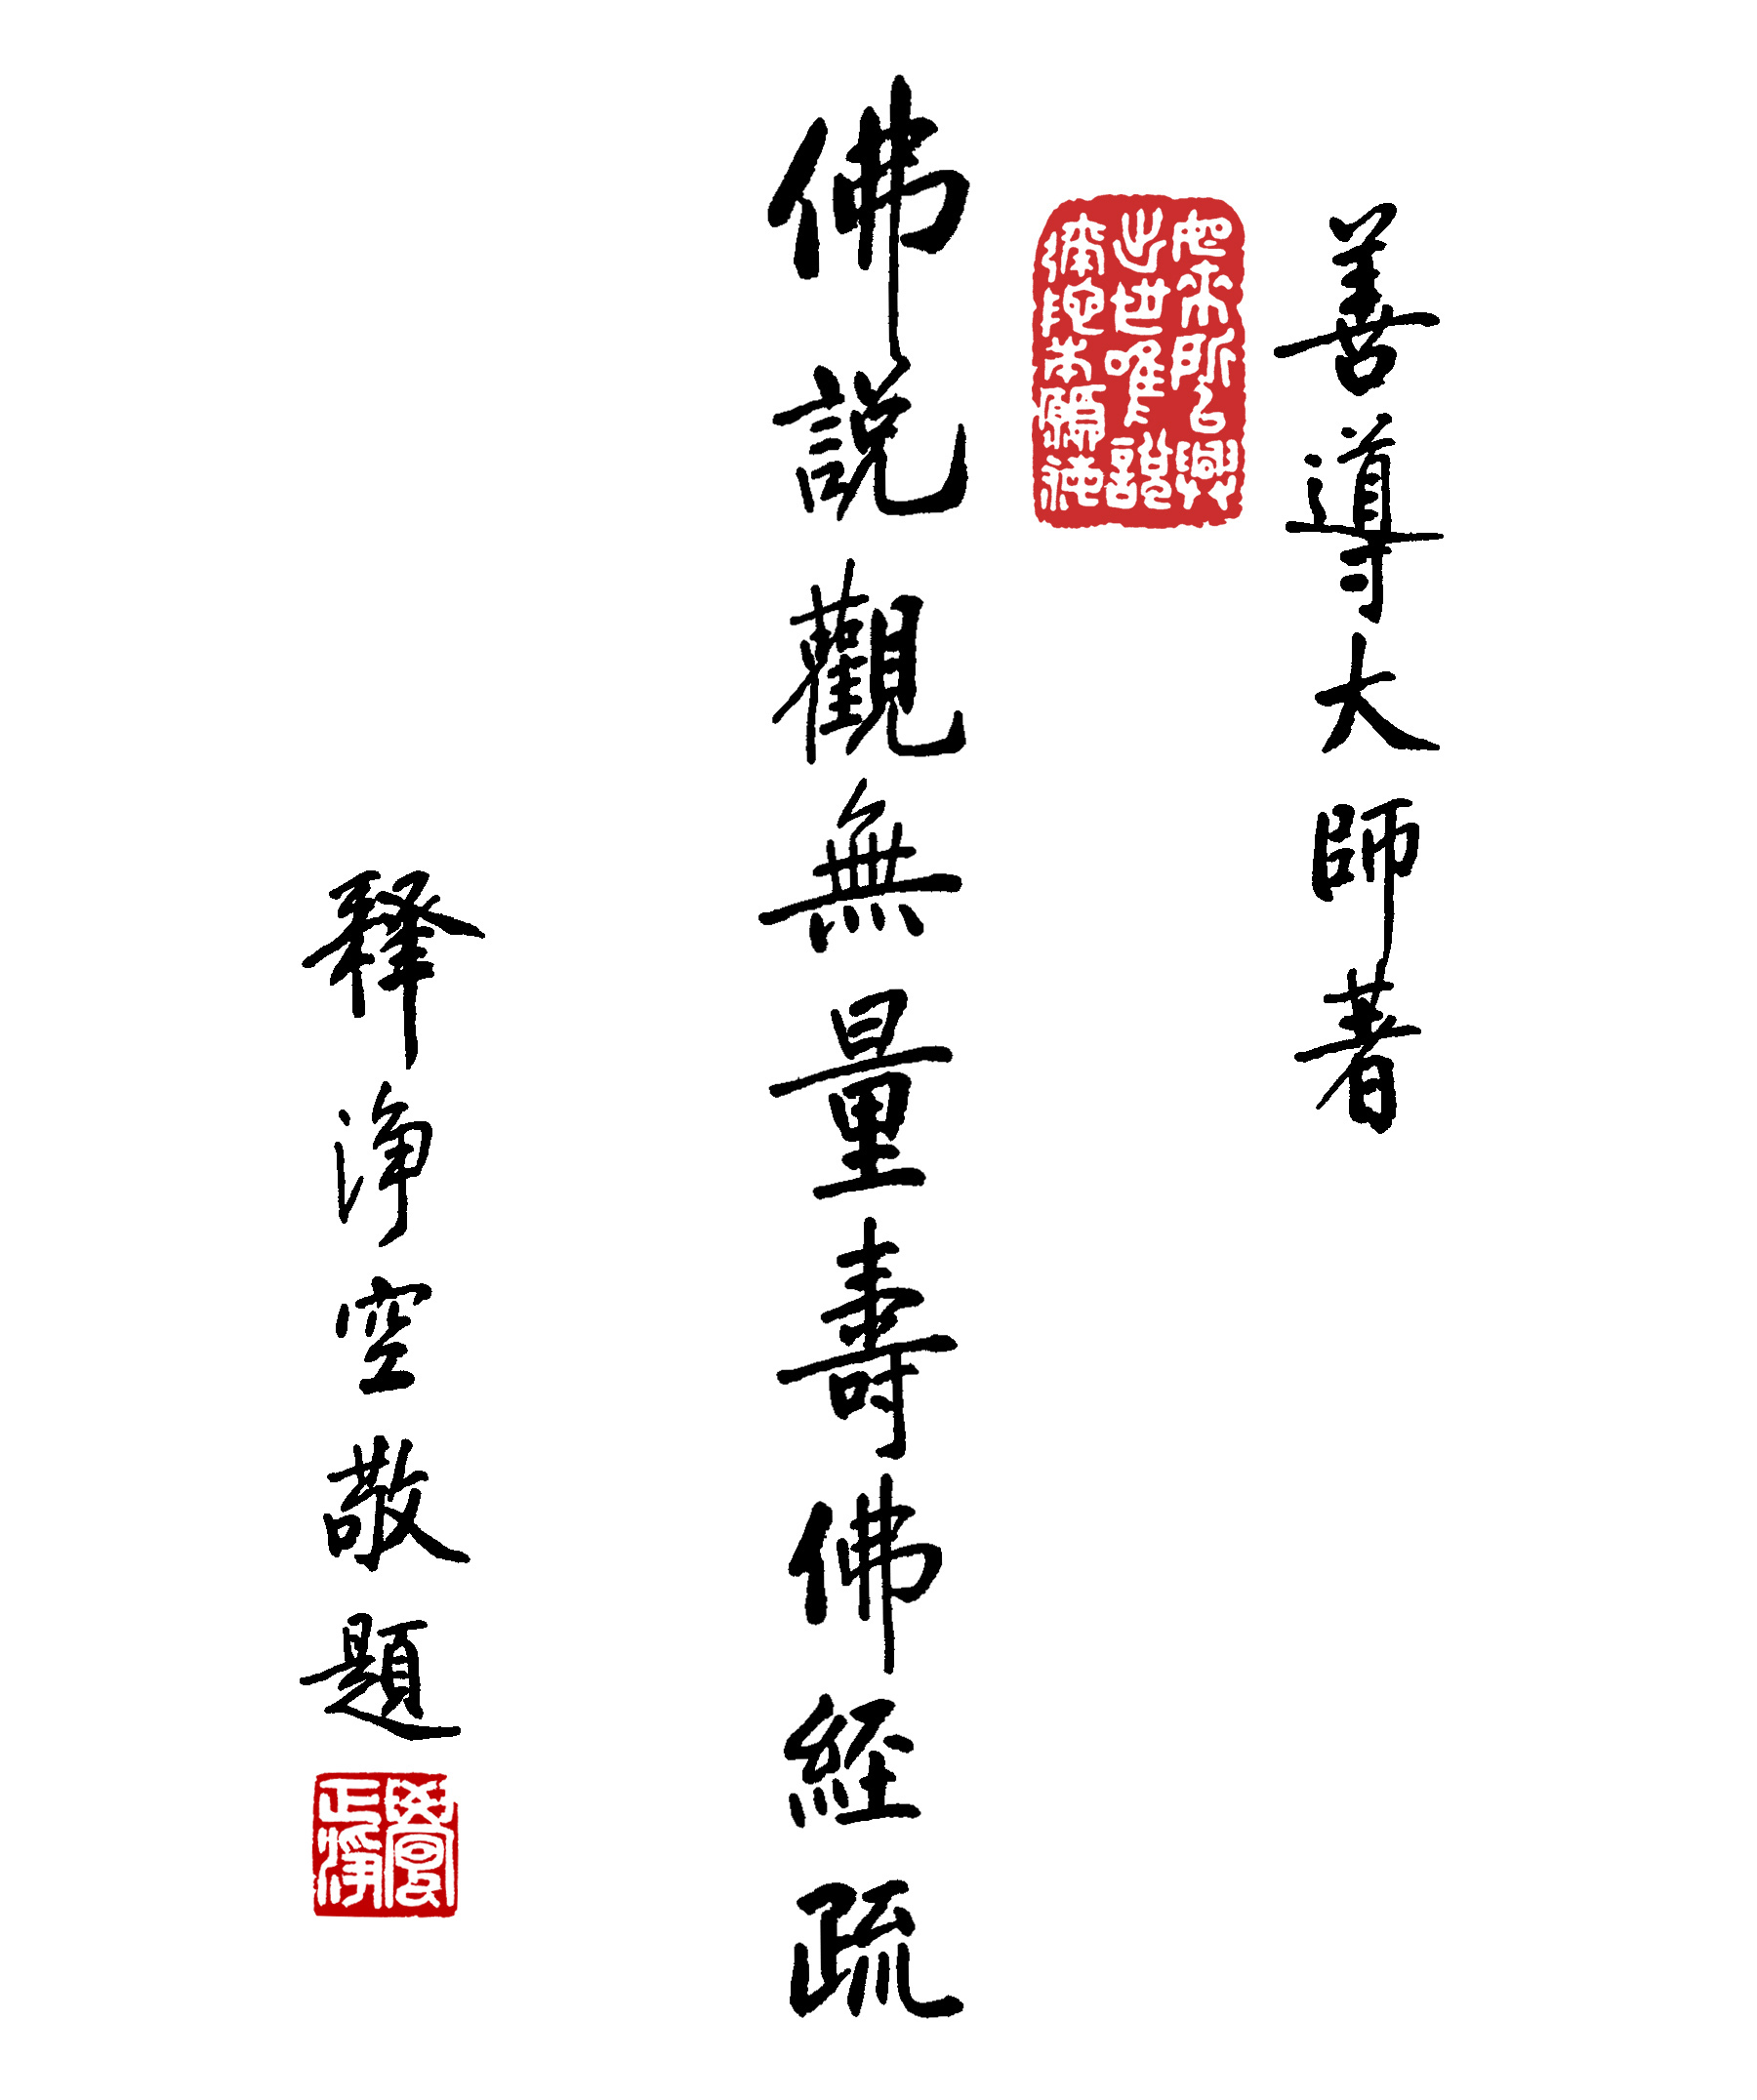 善導大師著
如來所以興
出世唯說
彌陀本願海
佛說觀無量壽佛經疏
釋淨空敬題